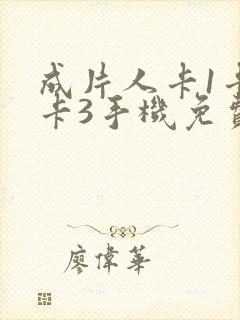 成片人卡1卡
卡3手機免費
廖偉華